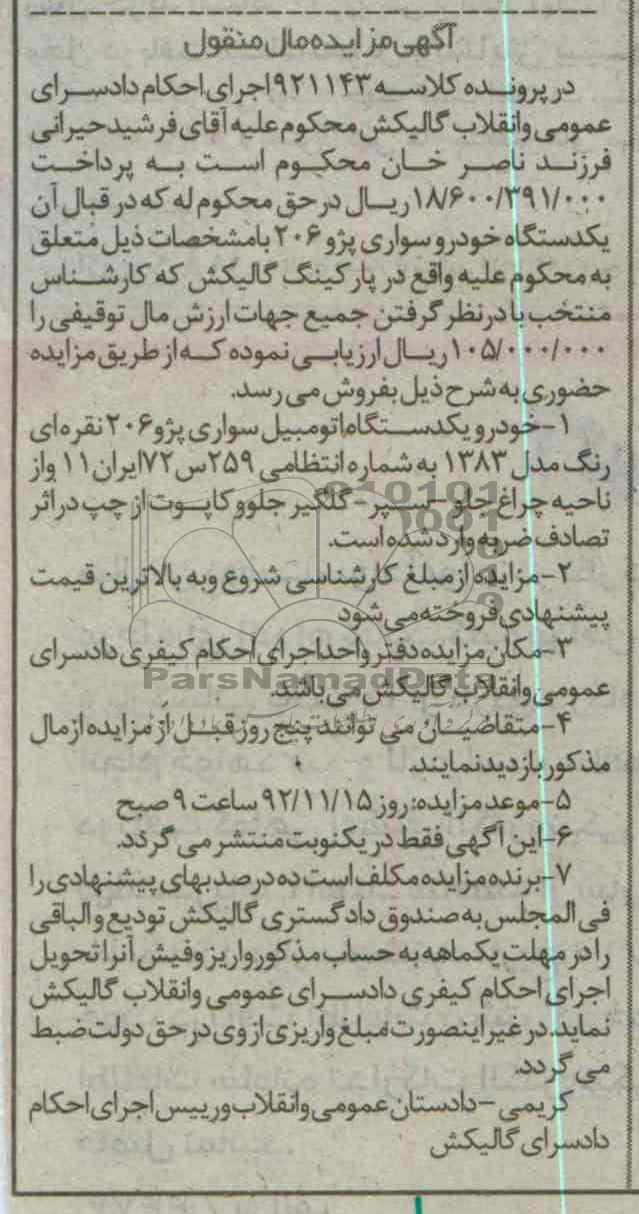 آگهی مزایده مال منقول
در پرونده کلاسه ۹۲۱۱۴۳ اجرای احکام دادسرای
عمومی وانقلاب گالیکش محکوم علیه آقای فرشید حیرانی
فرزند ناصر خان محکوم است به پرداخت
۱۸/۶۰۰/۳۹۱/۰۰۰ ریال در حق محکوم له که در قبال آن
یکدستگاه خودرو سواری پژو ۲۰۶ بامشخصات ذیل متعلق
به محکوم علیه واقع در پارکینگ گالیکش که کارشناس
منتخب با درنظر گرفتن جمیع جهات ارزش مال توقیفی را
۱۰۵/۰۰۰/۰۰۰ ریال ارزیابی نموده که از طریق مزایده
حضوری به شرح ذیل بفروش می رسد.
۱-خودرو یکدستگاه اتومبیل سواری پژو ۲۰۶ نقره ای
رنگ مدل ۱۳۸۳ به شماره انتظامی ۲۵۹س۷۲ایران۱۱ واز
ناحیه چراغ جلو-سپر-گلگیر جلوو کاپوت از چپ در اثر
تصادف ضربه وارد شده است.
۲-مزایده از مبلغ کارشناسی شروع وبه بالاترین قیمت
پیشنهادی فروخته می شود
۳-مکان مزایده دفتر واحد اجرای احکام کیفری دادسرای
عمومی وانقلاب گالیکش می باشد.
ParsNamadData
۴-متقاضیان می توانند پنج روز قبل از مزایده ازمال
مذکور بازدید نمایند.
۵-موعد مزایده: روز ۹۲/۱۱/۱۵ ساعت ۹ صبح
۶-این آگهی فقط در یکنوبت منتشر می گردد.
۷-برنده مزایده مکلف است ده درصد بهای پیشنهادی را
فی المجلس به صندوق دادگستری گالیکش تودیع و الباقی
را در مهلت یکماهه به حساب مذکور واریز و فیش آنرا تحویل
اجرای احکام کیفری دادسرای عمومی وانقلاب گالیکش
نماید. در غیر اینصورت مبلغ واریزی از وی در حق دولت ضبط
می گردد.
کریمی -دادستان عمومی وانقلاب ورییس اجرای احکام
دادسرای گالیکش